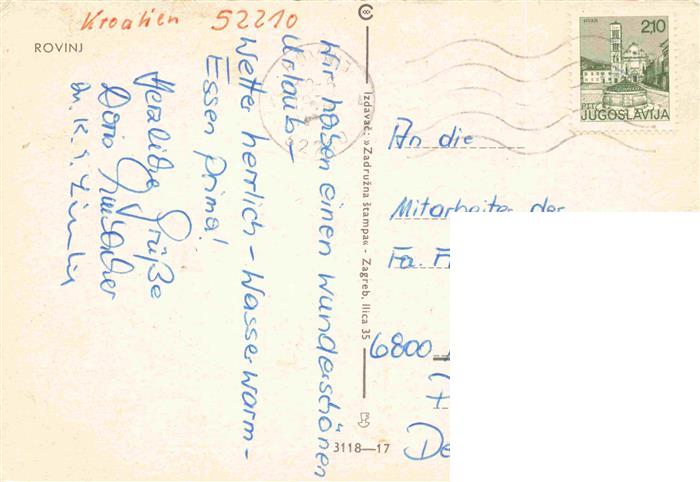 Kroatien 52210
ROVINJ
Wir haben einen wunderschönen
Urlaub -
Wetter herrlich - Wasser warm -
Essen prima!
Herzliche Grüße
Doris
Izdavač: »Zadružna štampa« - Zagreb, Ilica 35
3118—17
HVAR
2,10
PTT
JUGOSLAVIJA
An die
Mitarbeiter der
Fa. F
6800
De